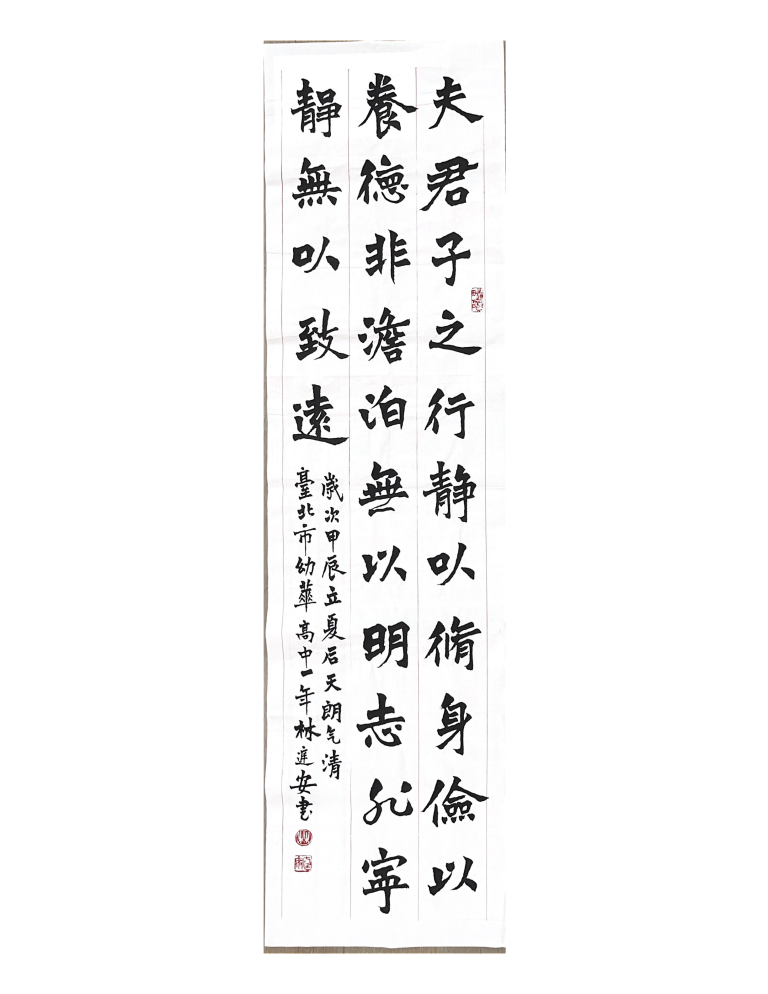 夫君子之行静以脩身儉以
養德非澹泊無以明志非寧
靜無以致遠
歲次甲辰立夏后天朗气清
臺北市幼華高中一年林庭安書